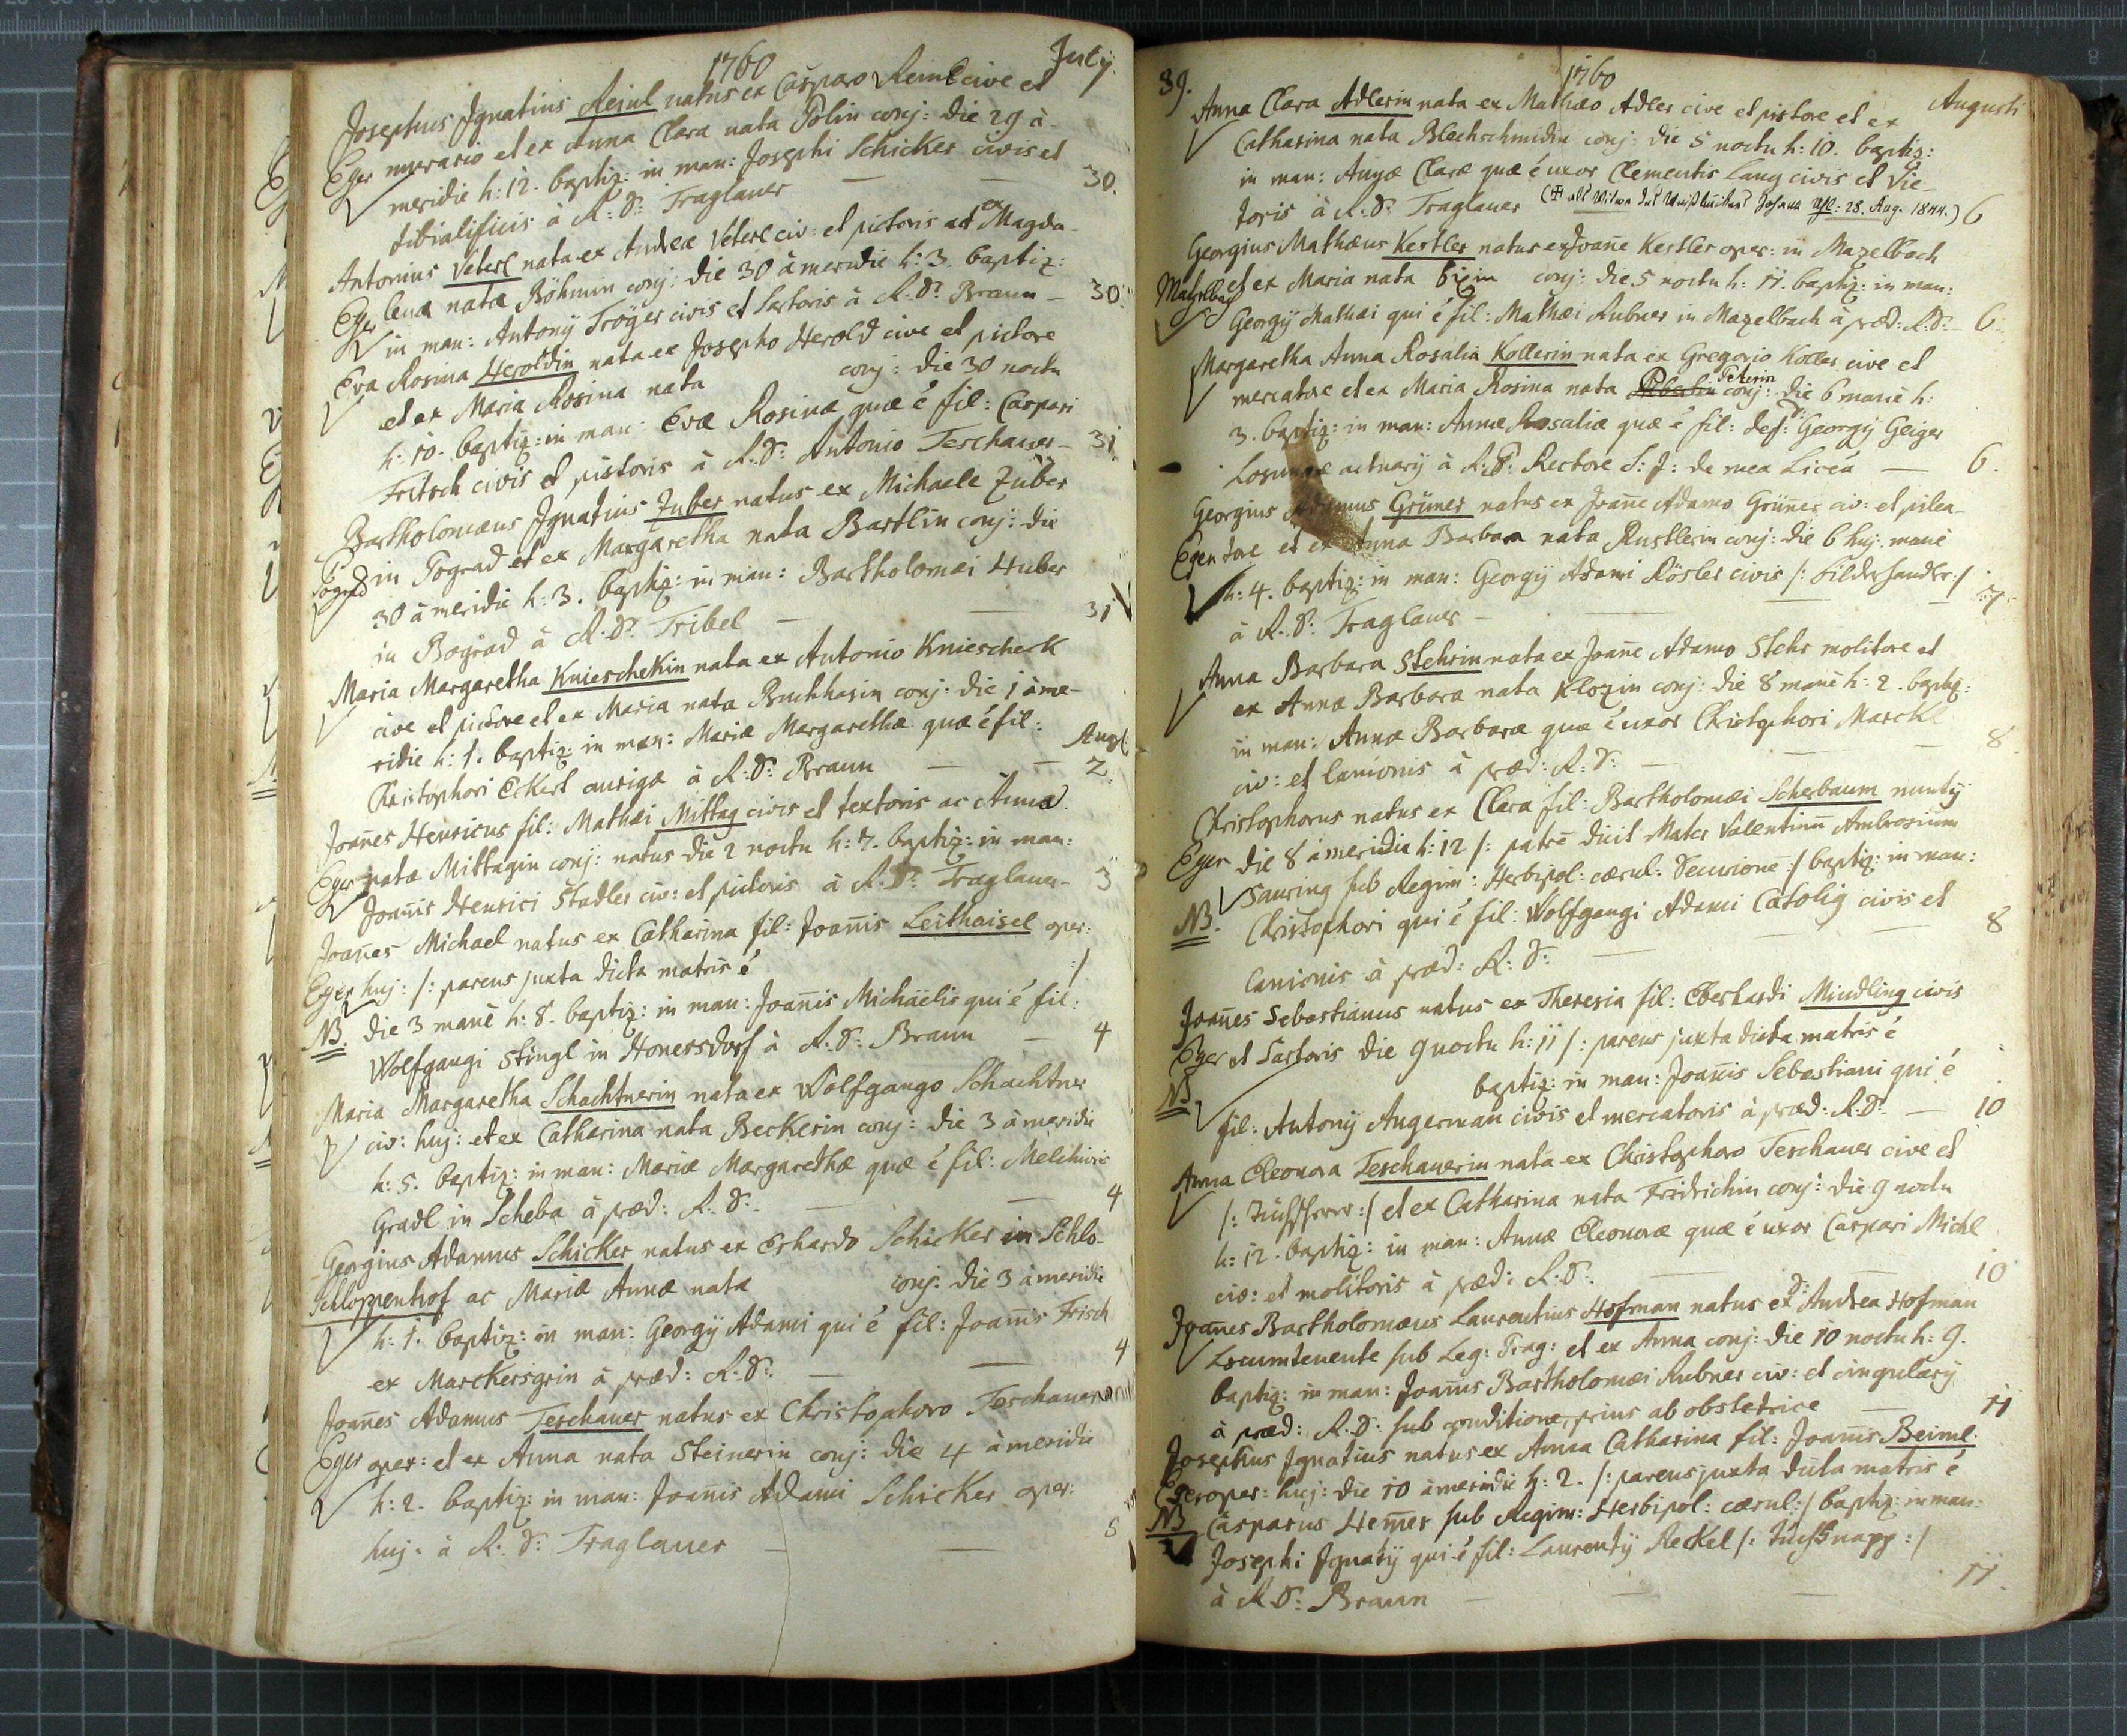 1760
July
Josephus Ignatius Reinl natus ex Casparo Reinl cive et
Eger murario et ex Anna Clara nata Pölin conj: die 29 à
meridie h: 12. baptiz: in man: Josephi Schicker civis et
tibialificis à R: D: Traglauer — — 30.
Antonius Veterl nata ex Andrea Veterl civ: et pictoris ex Magda-
Eger lena nata Böhmin conj: die 30 à meridie h: 3. baptiz:
in man: Antonÿ Tröger civis et Sartoris à R: D: Braun — 30.
Eva Rosina Heroldin nata ex Josepho Herold cive et pictore
et ex Maria Rosina nata conj: die 30 noctu
h: 10. baptiz: in man: Evæ Rosinæ quæ é fil: Caspari
Fritsch civis et pistoris à R: D: Antonio Teschauer — 31
Bartholomæus Ignatius Zuber natus ex Michaele Zuber
Pograd in Pograd et ex Margaretha nata Bartlin conj: die
30 à meridie h: 3. baptiz: in man: Bartholomæi Huber
in Pograd à R: D: Tribel — — 31
Maria Margaretha Knieschekin nata ex Antonio Kniescheck
cive et pictore et ex Maria nata Buchhasin conj: die 1 à me-
ridie h: 1. baptiz: in man: Mariæ Margarethæ quæ é fil: Aug:
Christophori Eckert aurigæ à R: D: Braun — — 2.
Joañes Henricus fil: Mathæi Mittag civis et textoris ac Annæ
Eger natæ Mittagin conj: natus die 2 noctu h: 7. baptiz: in man:
Joañis Henrici Stadler civ: et pictoris à R: D: Traglauer — 3
Joañes Michael natus ex Catharina fil: Joañis Leithaisel oper:
Eger huj: /: parens juxta dicta matris é :/
NB. die 3 manè h: 8. baptiz: in man: Joañis Michaëlis qui é fil:
Wolfgangi Stingl in Honersdorf à R: D: Braun — 4
Maria Margaretha Schachtnerin nata ex Wolfgango Schachtner
civ: huj: et ex Catharina nata Beckerin conj: die 3 à meridie
h: 5. baptiz: in man: Mariæ Margarethæ quæ é fil: Melchioris
Gradl in Scheba à præd: R: D: — — 4
Georgius Adamus Schicker natus ex Erhardo Schicker in Schlo-
Schloppenhof ac Mariæ Annæ nata conj: die 3 à meridie
h: 1. baptiz: in man: Georgÿ Adami qui é fil: Joañis Frisch
ex Marckersgrin à præd: R: D: — — 4
Joañes Adamus Teschauer natus ex Christophoro Teschauer
Eger oper: et ex Anna nata Steinerin conj: die 4 à meridie
h: 2. baptiz: in man: Joañis Adami Schicker oper:
huj: à R: D: Traglauer — — 5
89.
1760
Augusti
Anna Clara Adlerin nata ex Mathæo Adler cive et pistore et ex
Catharina nata Blechschmidin conj: die 5 noctu h: 10. baptiz:
in man: Annæ Claræ quæ é uxor Clementis Lang civis et Vie-
toris à R: D: Traglauer 28. Aug. 1844.) 6
Georgius Mathæus Kestler natus ex Joañe Kestler oper: in Mazelbach
Mazelbach et ex Maria nata conj: die 5 noctu h: 11. baptiz: in man:
Georgÿ Mathæi qui é fil: Mathæi Rubner in Mazelbach à præd: R: D: — 6
Margaretha Anna Rosalia Kollerin nata ex Gregorio Koller cive et
mercatore et ex Maria Rosina nata Peterin conj: die 6 manè h:
3. baptiz: in man: Annæ Rosaliæ quæ é fil: def: Georgÿ Geiger
Losungæ actuarÿ à R: P: Rectore S: J: de mea Liceã — 6.
Georgius Adamus Grüner natus ex Joañe Adamo Grüner civ: et pilea-
Eger tore et ex Anna Barbara nata Rustlerin conj: die 6 huj: manè
h: 4. baptiz: in man: Georgÿ Adami Rösler civis
à R: D: Traglauer — — 7.
Anna Barbara Stehrin nata ex Joañe Adamo Stehr molitore et
ex Anna Barbara nata Klozin conj: die 8 manè h: 2. baptiz:
in man: Annæ Barbaræ quæ é uxor Christophori Marckl
civ: et lanionis à præd: R: D: — — 8
Christophorus natus ex Clara fil: Bartholomæi Scherbaum nuntÿ
Eger die 8 à meridie h: 12 /: patrē dicit Mater Valentinū Ambrosium
Sauring sub Regim: Herbipol: cærul: Decurionē :/ baptiz: in man:
NB. Christophori qui é fil: Wolfgangi Adami Catolig civis et
lanionis à præd: R: D: — — 8
Joañes Sebastianus natus ex Theresia fil: Eberhardi Mindling civis
Eger et Sartoris die 9 noctu h: 11 /: parens juxta dicta matris é
NB. baptiz: in man: Joañis Sebastiani qui é
fil: Antonÿ Angerman civis et mercatoris à præd: R: D: — 10
Anna Eleonora Teschauerin nata ex Christophoro Teschauer cive et
/: Tuchscherer :/ et ex Catharina nata Fridrichin conj: die 9 noctu
h: 12. baptiz: in man: Annæ Eleonoræ quæ é uxor Caspari Michl
civ: et molitoris à præd: R: D: — — 10
Joañes Bartholomæus Laurentius Hofman natus ex D: Andrea Hofman
Locumtenente sub Leg: Prag: et ex Anna conj: die 10 noctu h: 9.
baptiz: in man: Joañis Bartholomæi Rubner civ: et cingularÿ
à præd: R: D: sub conditione, prius ab obstetrice — 11
Josephus Ignatius natus ex Anna Catharina fil: Joañis Beiml
Eger oper: huj: die 10 à meridie h: 2. /: parens juxta dicta matris é
NB Casparus Hem̃er sub Regim: Herbipol: cærul: :/ baptiz: in man:
Josephi Ignatÿ qui é fil: Laurentÿ Reckel /: Tuchknapp :/
à R: D: Braun — — 11.